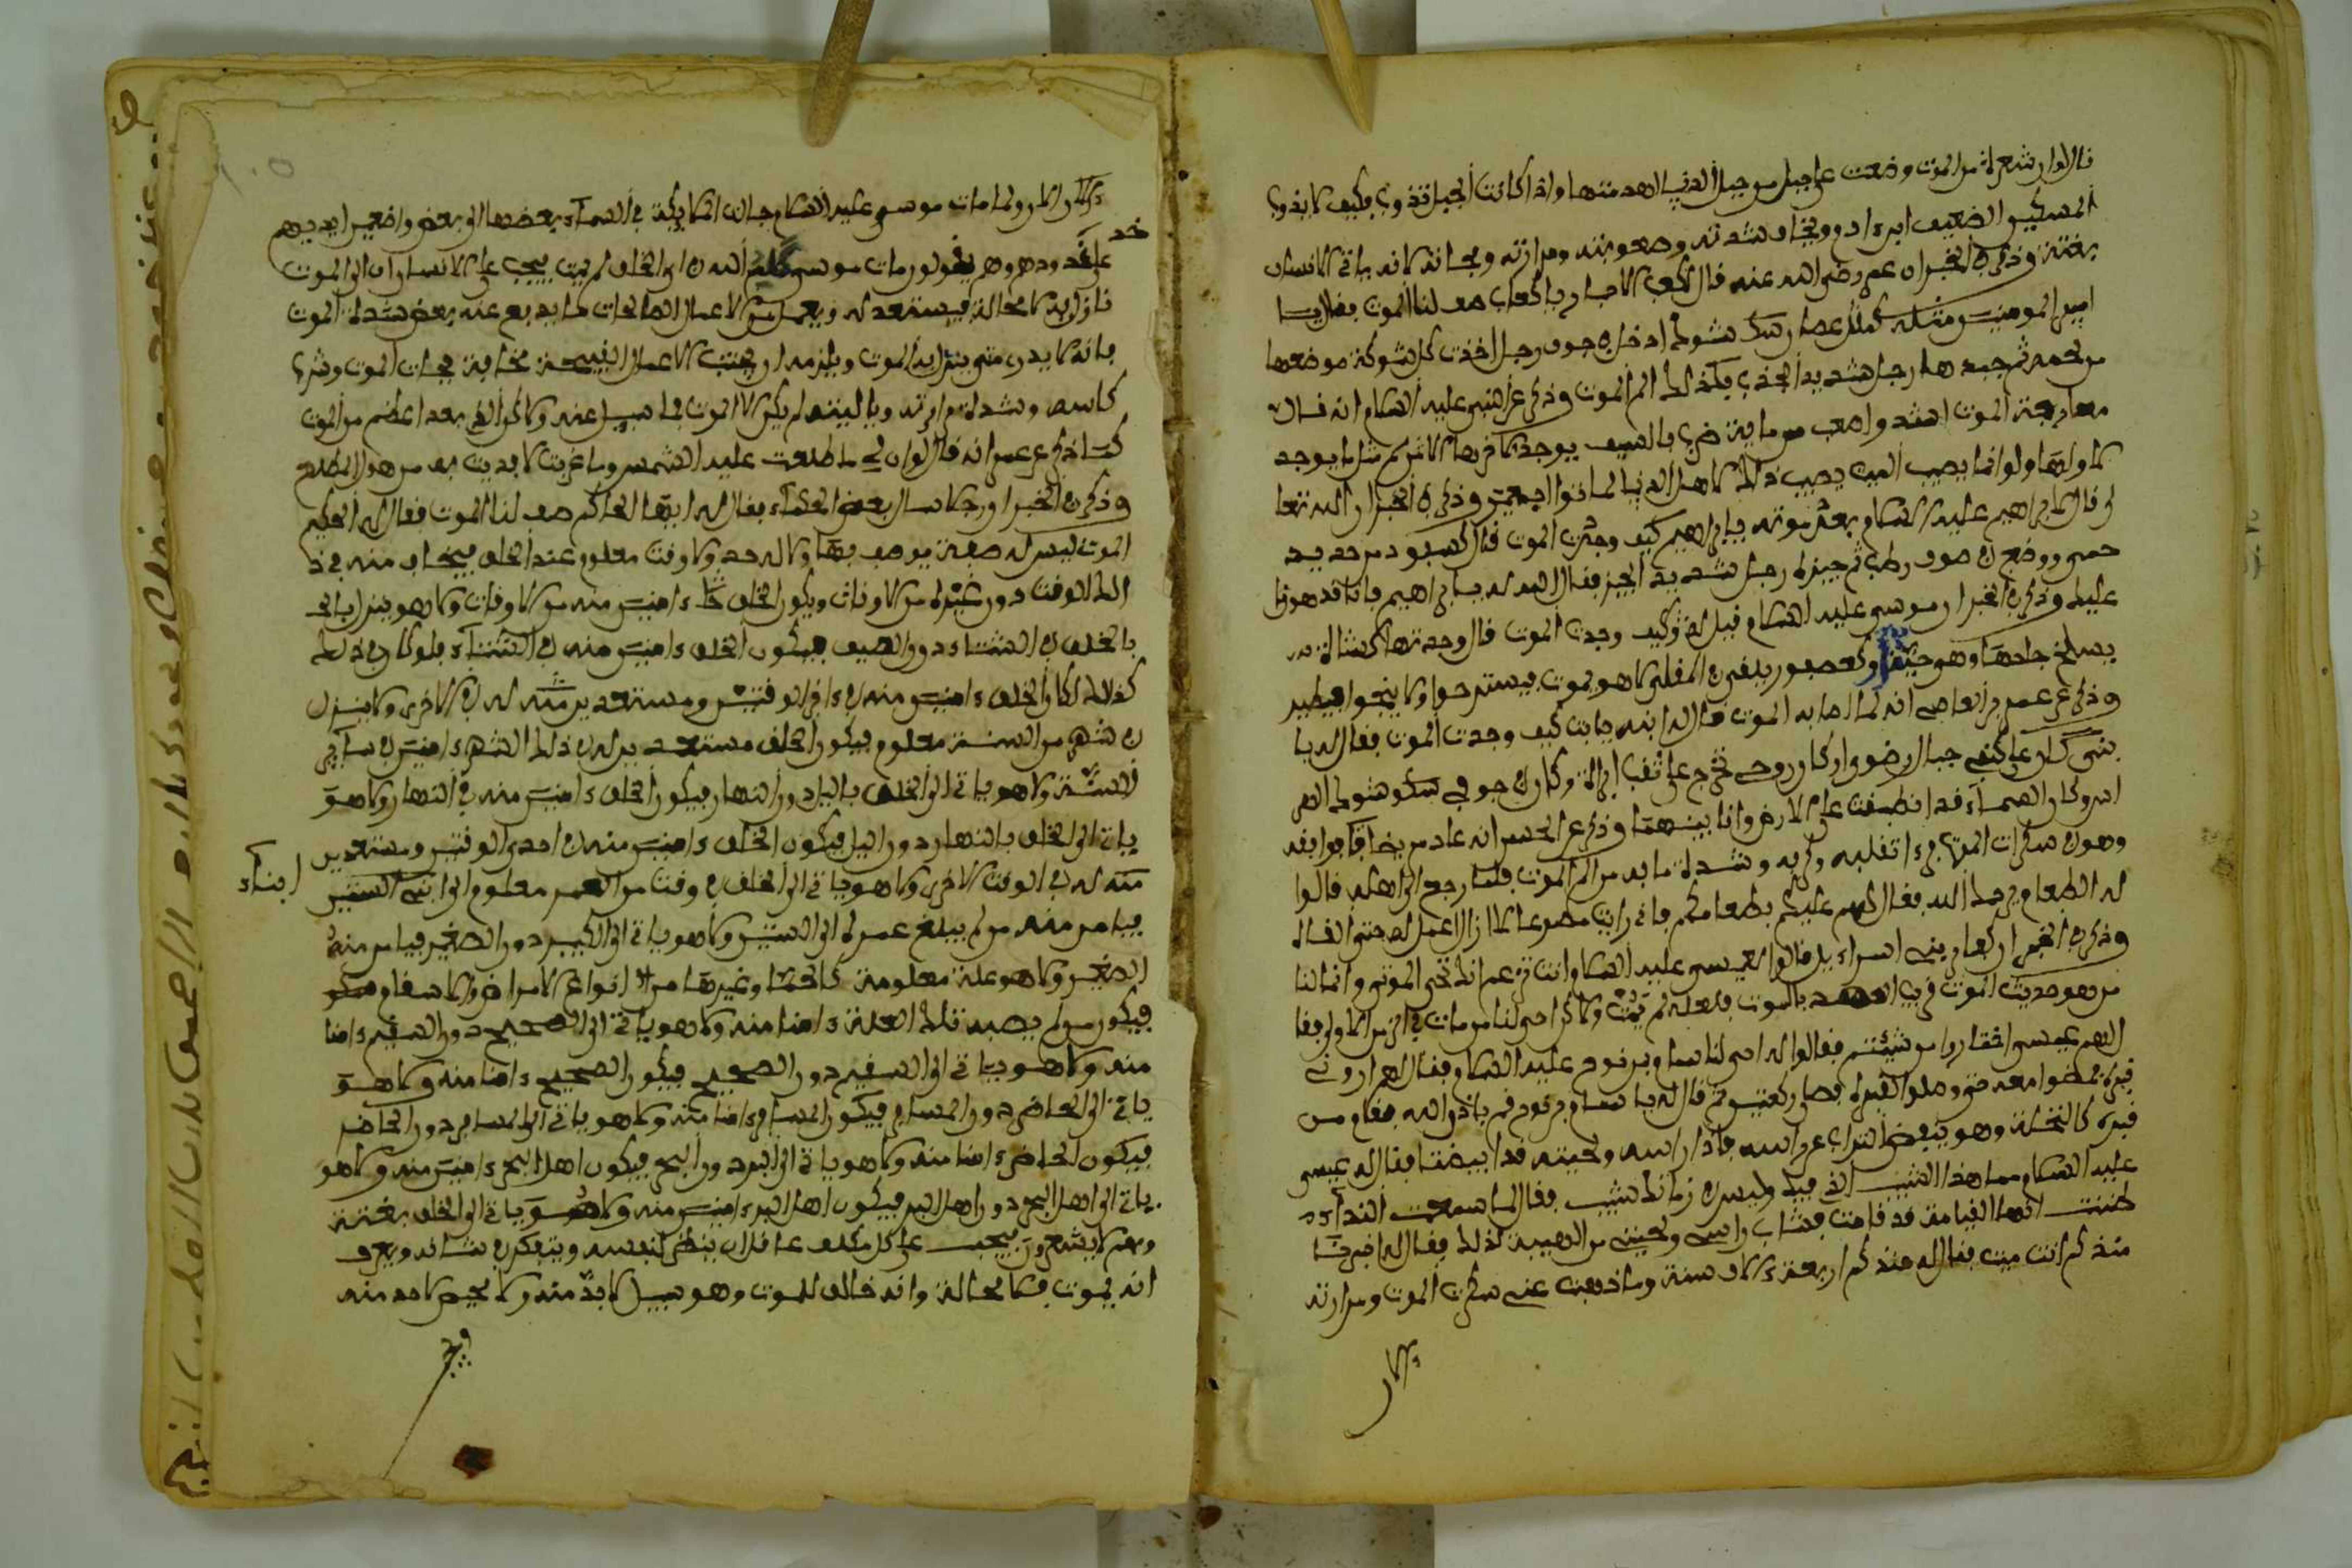 قال لو ان شعرة من الموت وضعت على جبل من جبال الدنيا لهد منها واذا كانت الجبال تذوب فكيف لا يذوب
المسكين الضعيف ابن ءادم ويخاف شدته وصعوبته ومرارته وفجأته لانه ياتي الانسان
بغتة وذكر في الخبر ان عمر رضي الله عنه قال لكعب الاحبار يا كعب صف لنا الموت فقال يا
امير المومنين مثله كمثل عصا شوك ادخل في جوف رجل اخذت كل شوكة موضعها
من لحمه ثم جبدها رجل شديد الجذب فكذلك الم الموت وذكر عن النبي عليه السلام انه قال
معالجة الموت اشد واصعب من ماية ضربة بالسيف يوجد لاخرها الالم مثل ما يوجد
لاولها ولو انما يصيب الميت يصيب ذلك لاهل الدنيا لماتوا اجمعين وذكر في الخبر ان الله تعا
لى قال لابراهيم عليه السلام بعد موته يا ابراهيم كيف وجدت الموت قال كسفود من حديد
حمي ووضع في صوف رطب ثم جبذه رجل شديد الجبذ فقال الله له يا ابراهيم فانا قد هونا
عليك وذكر في الخبر ان موسى عليه السلام قيل له وكيف وجدت الموت قال وجدتها كشاة
يسلخ جلدها وهو حي وكعصفور يلقى في المقلى لا هو يموت فيستريح ولا ينجوا فيطير
وذكر عن عمر بن العاصي انه لما اصابه الموت قال له ابنه يا ابت كيف وجدت الموت فقال له يا
بني كان على كتفي جبال رضوى وكان روحي تخرج على ثقب ابرة وكان في جوفي شوك
وكان السماء قد انطبقت على الارض وانا بينهما وذكر عن الحسن انه عاد مريضا فوافقه
وهو في سكرات الموت فرءا تقلبه وكربه وشدة ما به من الم الموت فلما رجع الى اهله قالوا
له الطعام يرحمك الله فقال لهم عليكم بطعامكم فاني رايت مصرعا لا ازال اعمل له حتى القاه
وذكر في الخبر ان كفار بني اسراءيل قالوا لعيسى عليه السلام انت تزعم انك تحي الموتى وانما لنا
من هو حديث الموت قريب العهد بالموت فلعله لم يمت ولاكن احي لنا من مات في الزمن الاول فقا
ل لهم عيسى اختاروا من شئتم فقالوا له احي لنا سام بن نوح عليه السلام فقال لهم اروني
قبره فمضوا معه حتى وصلوا القبر فصلى ركعتين ثم قال له يا سام بن نوح قم باذن الله فقام من
قبره كالنخلة وهو ينفض التراب عن راسه فاذا راسه ولحيته قد ابيضتا فقال له عيسى
عليه السلام ما هذا الشيب الذي فيك وليس في زمانك شيب فقال لما سمعت النداء
ظننت انها القيامة قد قامت فشاب راسي ولحيتي من الهيبة لذلك فقال له اخبرنا
منذ كم انت ميت فقال له منذ كم اربعة ءالاف سنة وما ذهبت عني سكرت الموت ومرارته
ولما مات موسى عليه السلام جالت الملايكة في السماء بعضها الى بعض واضعين ايديهم
على خدودهم وهم يقولون مات موسى كليم الله فاي الخلق لم يمت فيجب على الانسان ان الموت
نازل به لا محالة فيستعد له ويعمل من الاعمال الصالحات ما يدفع عنه بعض شدة الموت
فانه لا يدري متى ينزل به الموت ويلزمه ان يجتنب الاعمال القبيحة مخافة فجأت الموت وشرب
كاسه وشدة مرارته ويا ليته لم يكن الا الموت عنه ولاكن الذي بعده اعظم من الموت
كما ذكر عن عمر انه قال لو ان لي ما طلعت عليه الشمس وما غربت لافديت به من هول المطلع
وذكر في الخبر ان رجلا سال بعض الحكماء فقال له ايها الحاكم صف لنا الموت فقال له الحكيم
الموت ليس له صفة يوصف بها ولا له حد ولا وقت معلوم عند الخلق فيخاف منه في ذ
لك الوقت دون غيره من الاوقات ويكون الخلق ءامنين منه من الاوقات ولا هو ينزل
بالخلق في الشتاء دون الصيف فيكون الخلق ءامنين منه في الشتاء فلو كان ذلك
كذلك لكان الخلق ءامنين منه في ءاخر الوقتين ومستعدين منه له في الاخرى ولا ينزل
في شهر من السنة معلوم فيكون الخلق مستعدين له في ذلك الشهر ءامنين في ساير
السنة ولا هو ياتي الى الخلق باليل دون النهار فيكون الخلق ءامنين منه في النهار ولا هو
ياتي الى الخلق بالنهار دون اليل فيكون الخلق ءامنين منه في احدى الوقتين ومستعدين
منه له في الوقت الاخرى ولا هو ياتي الى الخلق في وقت من العمر معلوم الى ابنى الستين
ابناء
فيامن منه من لم يبلغ عمره الى الستين ولا هو ياتي الى الكبير دون الصغير فيامن منه
الصغير ولا هو علة معلومة كالحما وغيرها من انواع الامراض والاسقام
فيكون من لم يصبه تلك العلة ءامنا منه ولا هو ياتي الى الصحيح دون السقيم ءامنا
منه ولا هو ياتي الى السقيم دون الصحيح فيكون الصحيح ءامنا منه ولا هو
ياتي الى الحاضر دون المسافر فيكون المسافر ءامنا منه ولا هو ياتي الى المسافر دون الحاضر
فيكون الحاضر ءامنا منه ولا هو ياتي الى البر دون البحر فيكون اهل البحر ءامنين منه ولا هو
ياتي الى اهل البحر دون اهل البر فيكون اهل البر ءامنين منه ولا هو ياتي الى الخلق بغتة
وهم لا يشعرون فيجب على كل مكلف عاقل ان ينظر لنفسه ويتفكر في شانه ويعرف
انه يموت فلا محالة وانه خالق للموت وهو سبيل لا بد منه ولا محيص لاحد منه